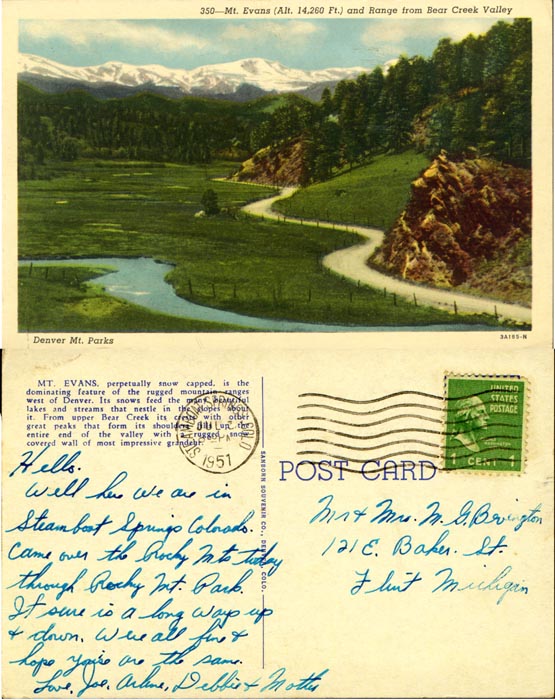 350—Mt. Evans (Alt. 14,260 Ft.) and Range from Bear Creek Valley
Denver Mt. Parks
3A165-N
MT. EVANS, perpetually snow capped, is the
dominating feature of the rugged mountain ranges
west of Denver. Its snows feed the many beautiful
lakes and streams that nestle in the slopes about
it. From upper Bear Creek its crest with other
great peaks that form its shoulders fills up the
entire end of the valley with a rugged snow
covered wall of most impressive grandeur.
STEAMBOAT SPRINGS COLO
PM
1951
UNITED
STATES
POSTAGE
WASHINGTON
1 CENT 1
SANBORN SOUVENIR CO., DENVER, COLO.
POST CARD
Hello.
Well here we are in
Steamboat Springs Colorado.
Came over the Rocky Mts today
through Rocky Mt. Park.
It sure is a long ways up
& down. We're all fine &
hope you're are the same.
Love, Joe, Arlene, Debbie & Mother
Mr & Mrs. M. G. Bevington
121 E. Baker St.
Flint Michigan